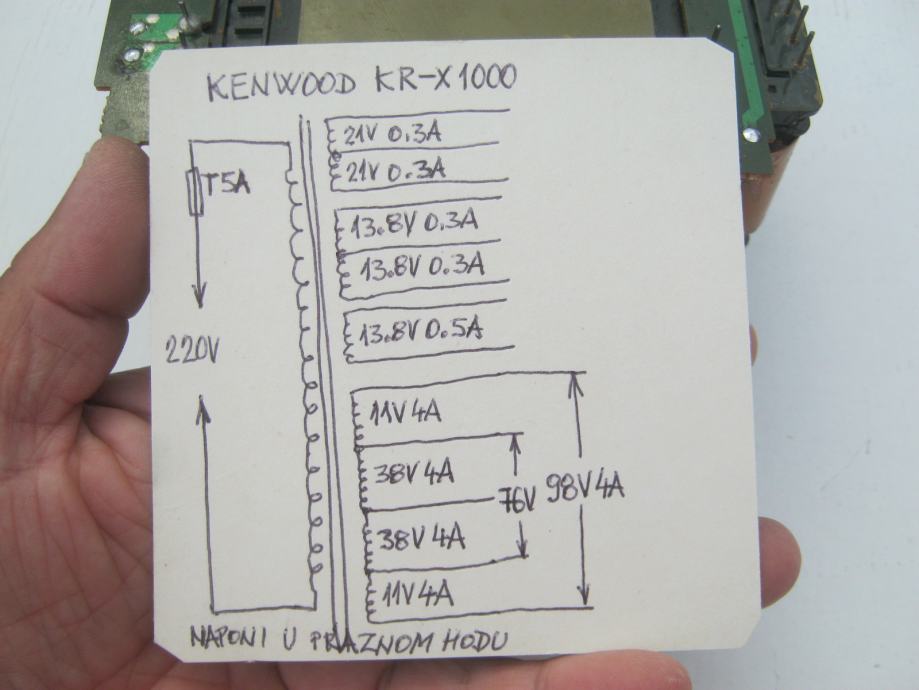 KENWOOD KR-X1000
21V 0.3A
21V 0.3A
T5A
13.8V 0.3A
13.8V 0.3A
13.8V 0.5A
220V
11V 4A
38V 4A
76V
98V 4A
38V 4A
11V 4A
NAPONI U PRAZNOM HODU